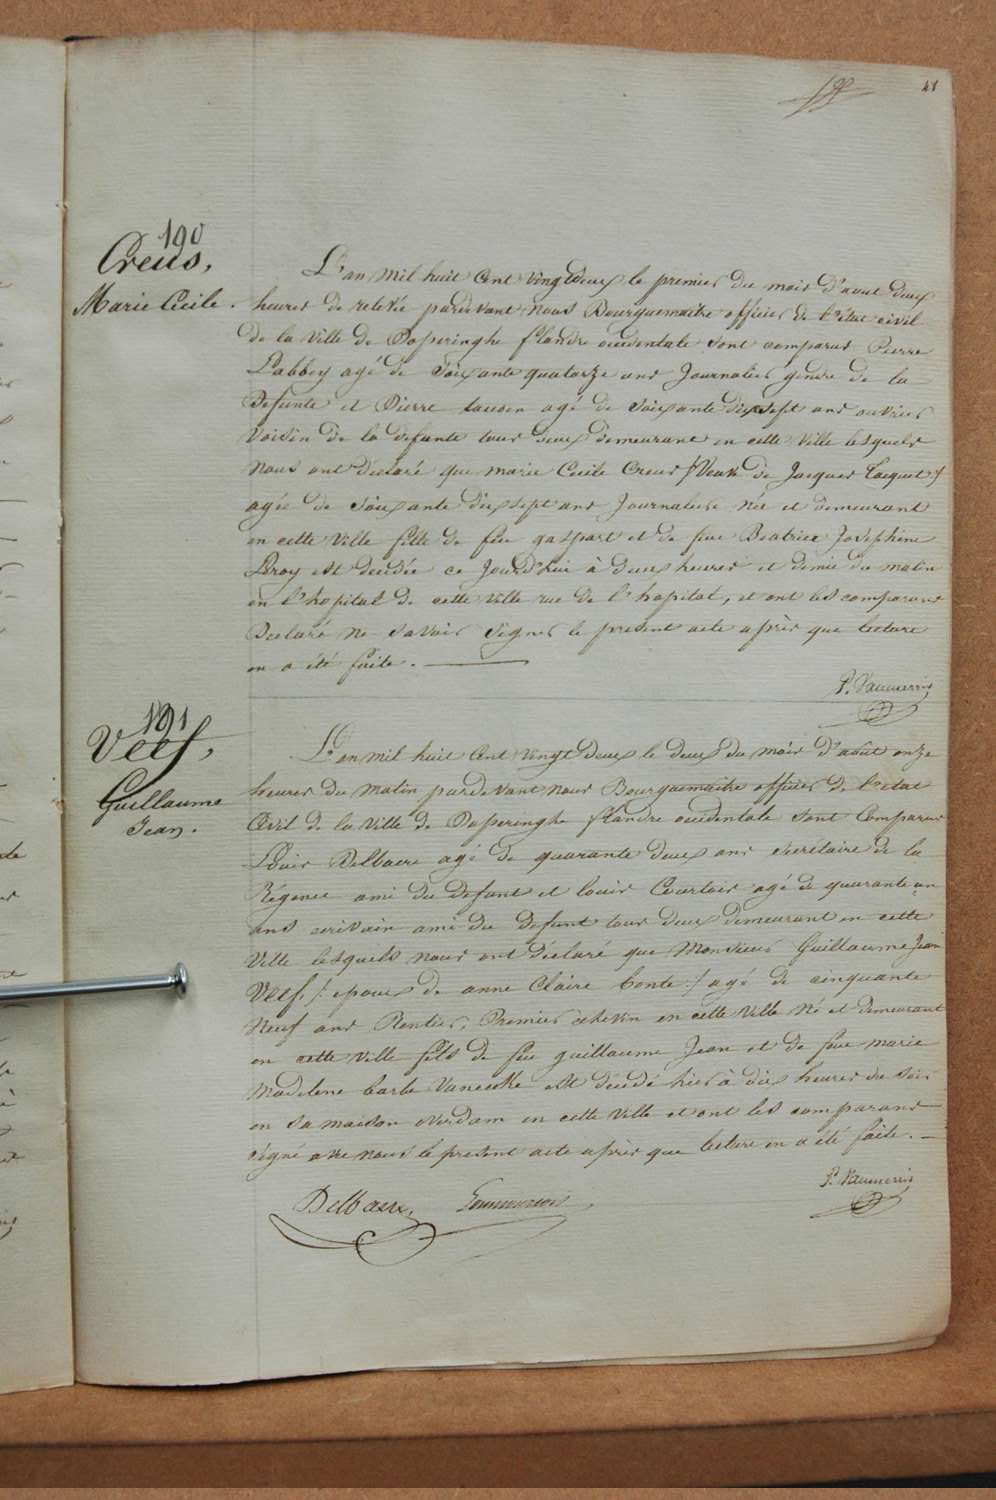 41
190
Creus,
Marie Cecile.
L'an mil huit Cent vingt deux le premier du mois d'aout deux
heures de relevée pardevant Nous Bourguemaitre officier de l'état civil
de la Ville de Poperinghe flandre occidentale sont comparus Pierre
Labbey agé de Soixante quatorze ans Journalier gendre de la
Defunte et Pierre agé de Soixante dix sept ans ouvrier
Voisin de la defunte tous deux demeurant en cette Ville lesquels
Nous ont déclaré que marie Cecile Creus /: Veuve de Jacques Tacquet :/
agée de Soixante dix sept ans Journaliere Née et demeurant
en cette Ville fille de feu gaspart et de feue Beatrice Josephine
Leroy est decedée ce Jourd'hui à deux heures et demie du matin
en l'hopital de cette Ville rue de l'hopital, et ont les comparans
Declaré Ne Savoir Signer le present acte après que lecture
en a été faite.
P. Vanmerris
191
Veef,
Guillaume
Jean.
L'an mil huit Cent vingt deux le deux du mois d'août onze
heures du Matin pardevant nous Bourguemaitre officier de l'etat
Civil de la Ville de Poperinghe flandre occidentale sont Comparus
Louis Delbaere agé de quarante deux ans Secrétaire de la
Régence ami du defunt et louis Courtois agé de quarante un
ans ecrivain ami du defunt tous deux demeurant en cette
Ville lesquels nous ont déclaré que Monsieur Guillaume Jean
Veef /: epoux de anne Claire bonte :/ agé de cinquante
Neuf ans Rentier, Premier echevin en cette Ville Né et demeurant
en cette Ville fils de feu guillaume Jean et de feue marie
Madelene barbe est décédé hier à dix heures du soir
en sa maison overdam en cette Ville et ont les comparans
signé avec nous le present acte après que lecture en a été faite.
P. Vanmerris
Delbaere,